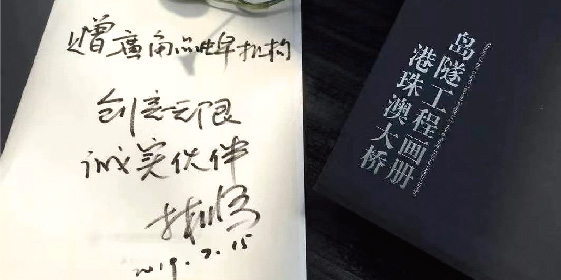 赠廣角品牌机构
创意无限
诚实伙伴
港珠澳大桥
岛隧工程画册